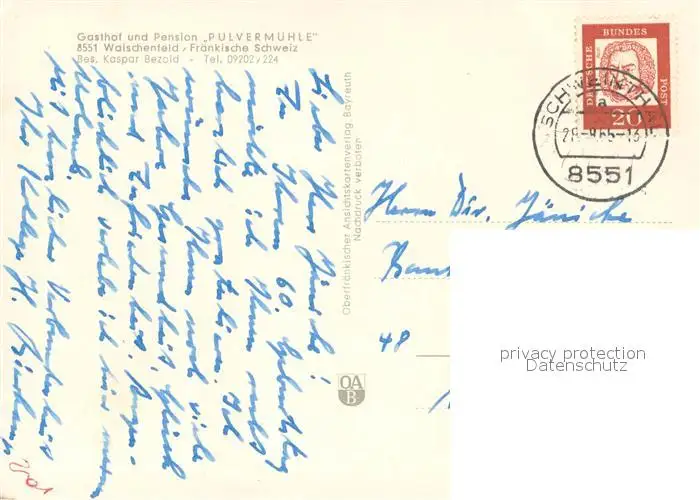 Gasthof und Pension „PULVERMÜHLE"
8551 Waischenfeld / Fränkische Schweiz
Bes. Kaspar Bezold - Tel. 09202/224
Lieber Herr Jänicke!
Zu Ihrem 60. Geburtstag
möchte ich Ihnen recht
herzlich gratulieren. Ich
wünsche Ihnen noch viele
Jahre Gesundheit, Glück
und Zufriedenheit.
verlebe ich hier meinen
Urlaub.
Mit herzlicher Verbundenheit
Ihr Kollege H.
Oberfränkischer Ansichtskartenverlag Bayreuth
Nachdruck verboten
OA
B
DEUTSCHE BUNDES POST
20
a
8551
Herrn Dir. Jänicke
48
privacy protection
Datenschutz